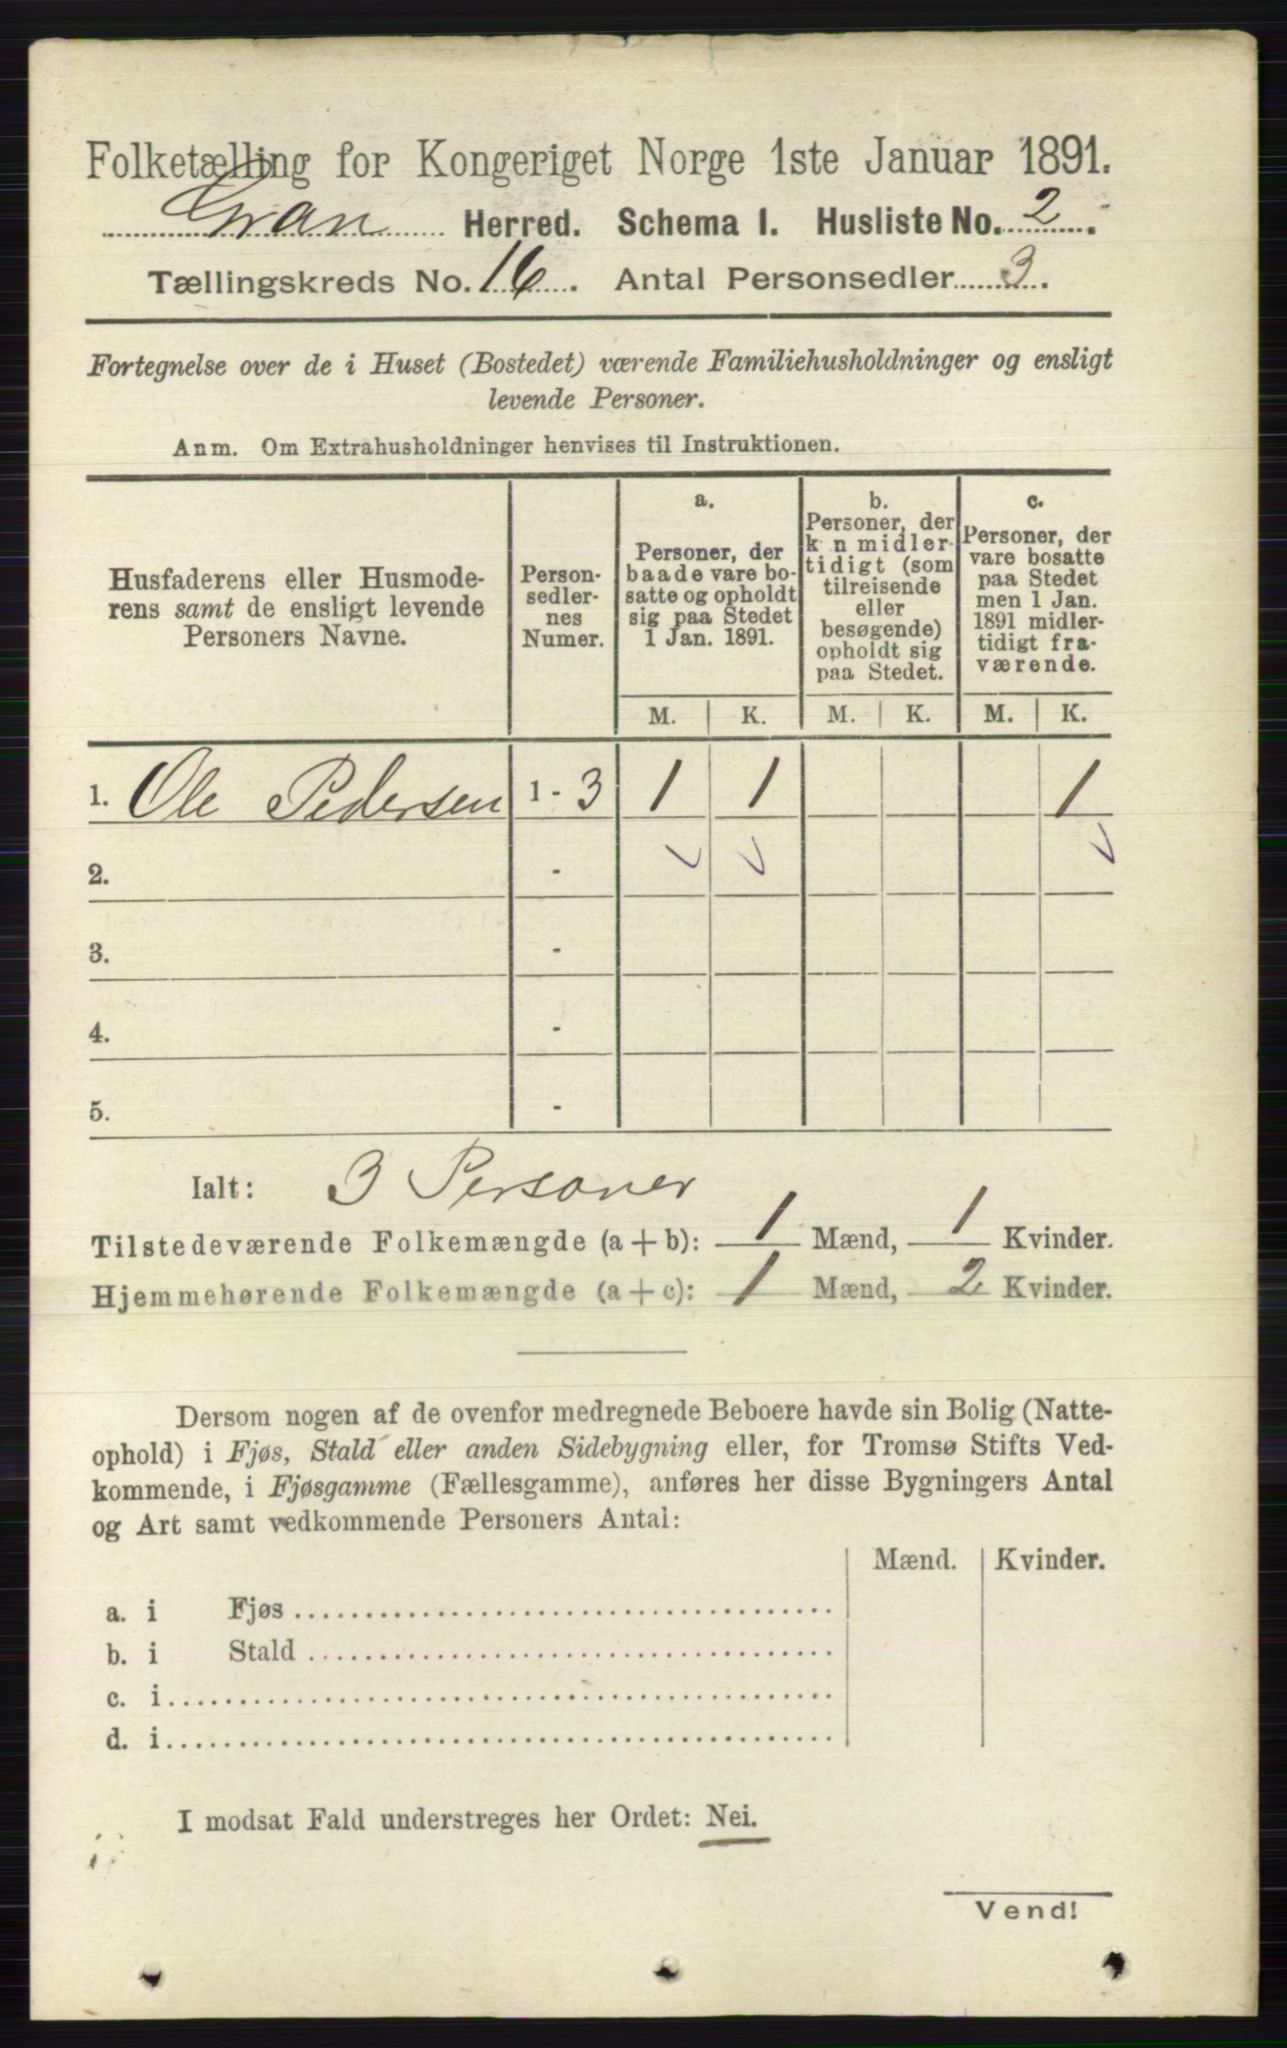 Folketælling for Kongeriget Norge 1ste Januar 1891.
Gran Herred. Schema I. Husliste No. 2.
Tællingskreds No. 16. Antal Personsedler 3.
Fortegnelse over de i Huset (Bostedet) værende Familiehusholdninger og ensligt
levende Personer.
Anm. Om Extrahusholdninger henvises til Instruktionen.
Husfaderens eller Husmode-
rens samt de ensligt levende
Personers Navne.
Person-
sedler-
nes
Numer.
a.
Personer, der
baade vare bo-
satte og opholdt
sig paa Stedet
1 Jan. 1891.
b.
Personer, der
k n midler-
tidigt (som
tilreisende
eller
besøgende)
opholdt sig
paa Stedet.
c.
Personer, der
vare bosatte
paa Stedet
men 1 Jan.
1891 midler-
tidigt fra-
værende.
M. K. M. K. M. K.
1. Ole Pedersen 1 - 3 1 1 1
2. -
3. -
4. -
5. -
Ialt: 3 Personer
Tilstedeværende Folkemængde (a + b): 1 Mænd, 1 Kvinder.
Hjemmehørende Folkemængde (a + c): 1 Mænd, 2 Kvinder.
Dersom nogen af de ovenfor medregnede Beboere havde sin Bolig (Natte-
ophold) i Fjøs, Stald eller anden Sidebygning eller, for Tromsø Stifts Ved-
kommende, i Fjøsgamme (Fællesgamme), anføres her disse Bygningers Antal
og Art samt vedkommende Personers Antal:
Mænd. Kvinder.
a. i Fjøs
b. i Stald
c. i
d. i
I modsat Fald understreges her Ordet: Nei.
Vend!